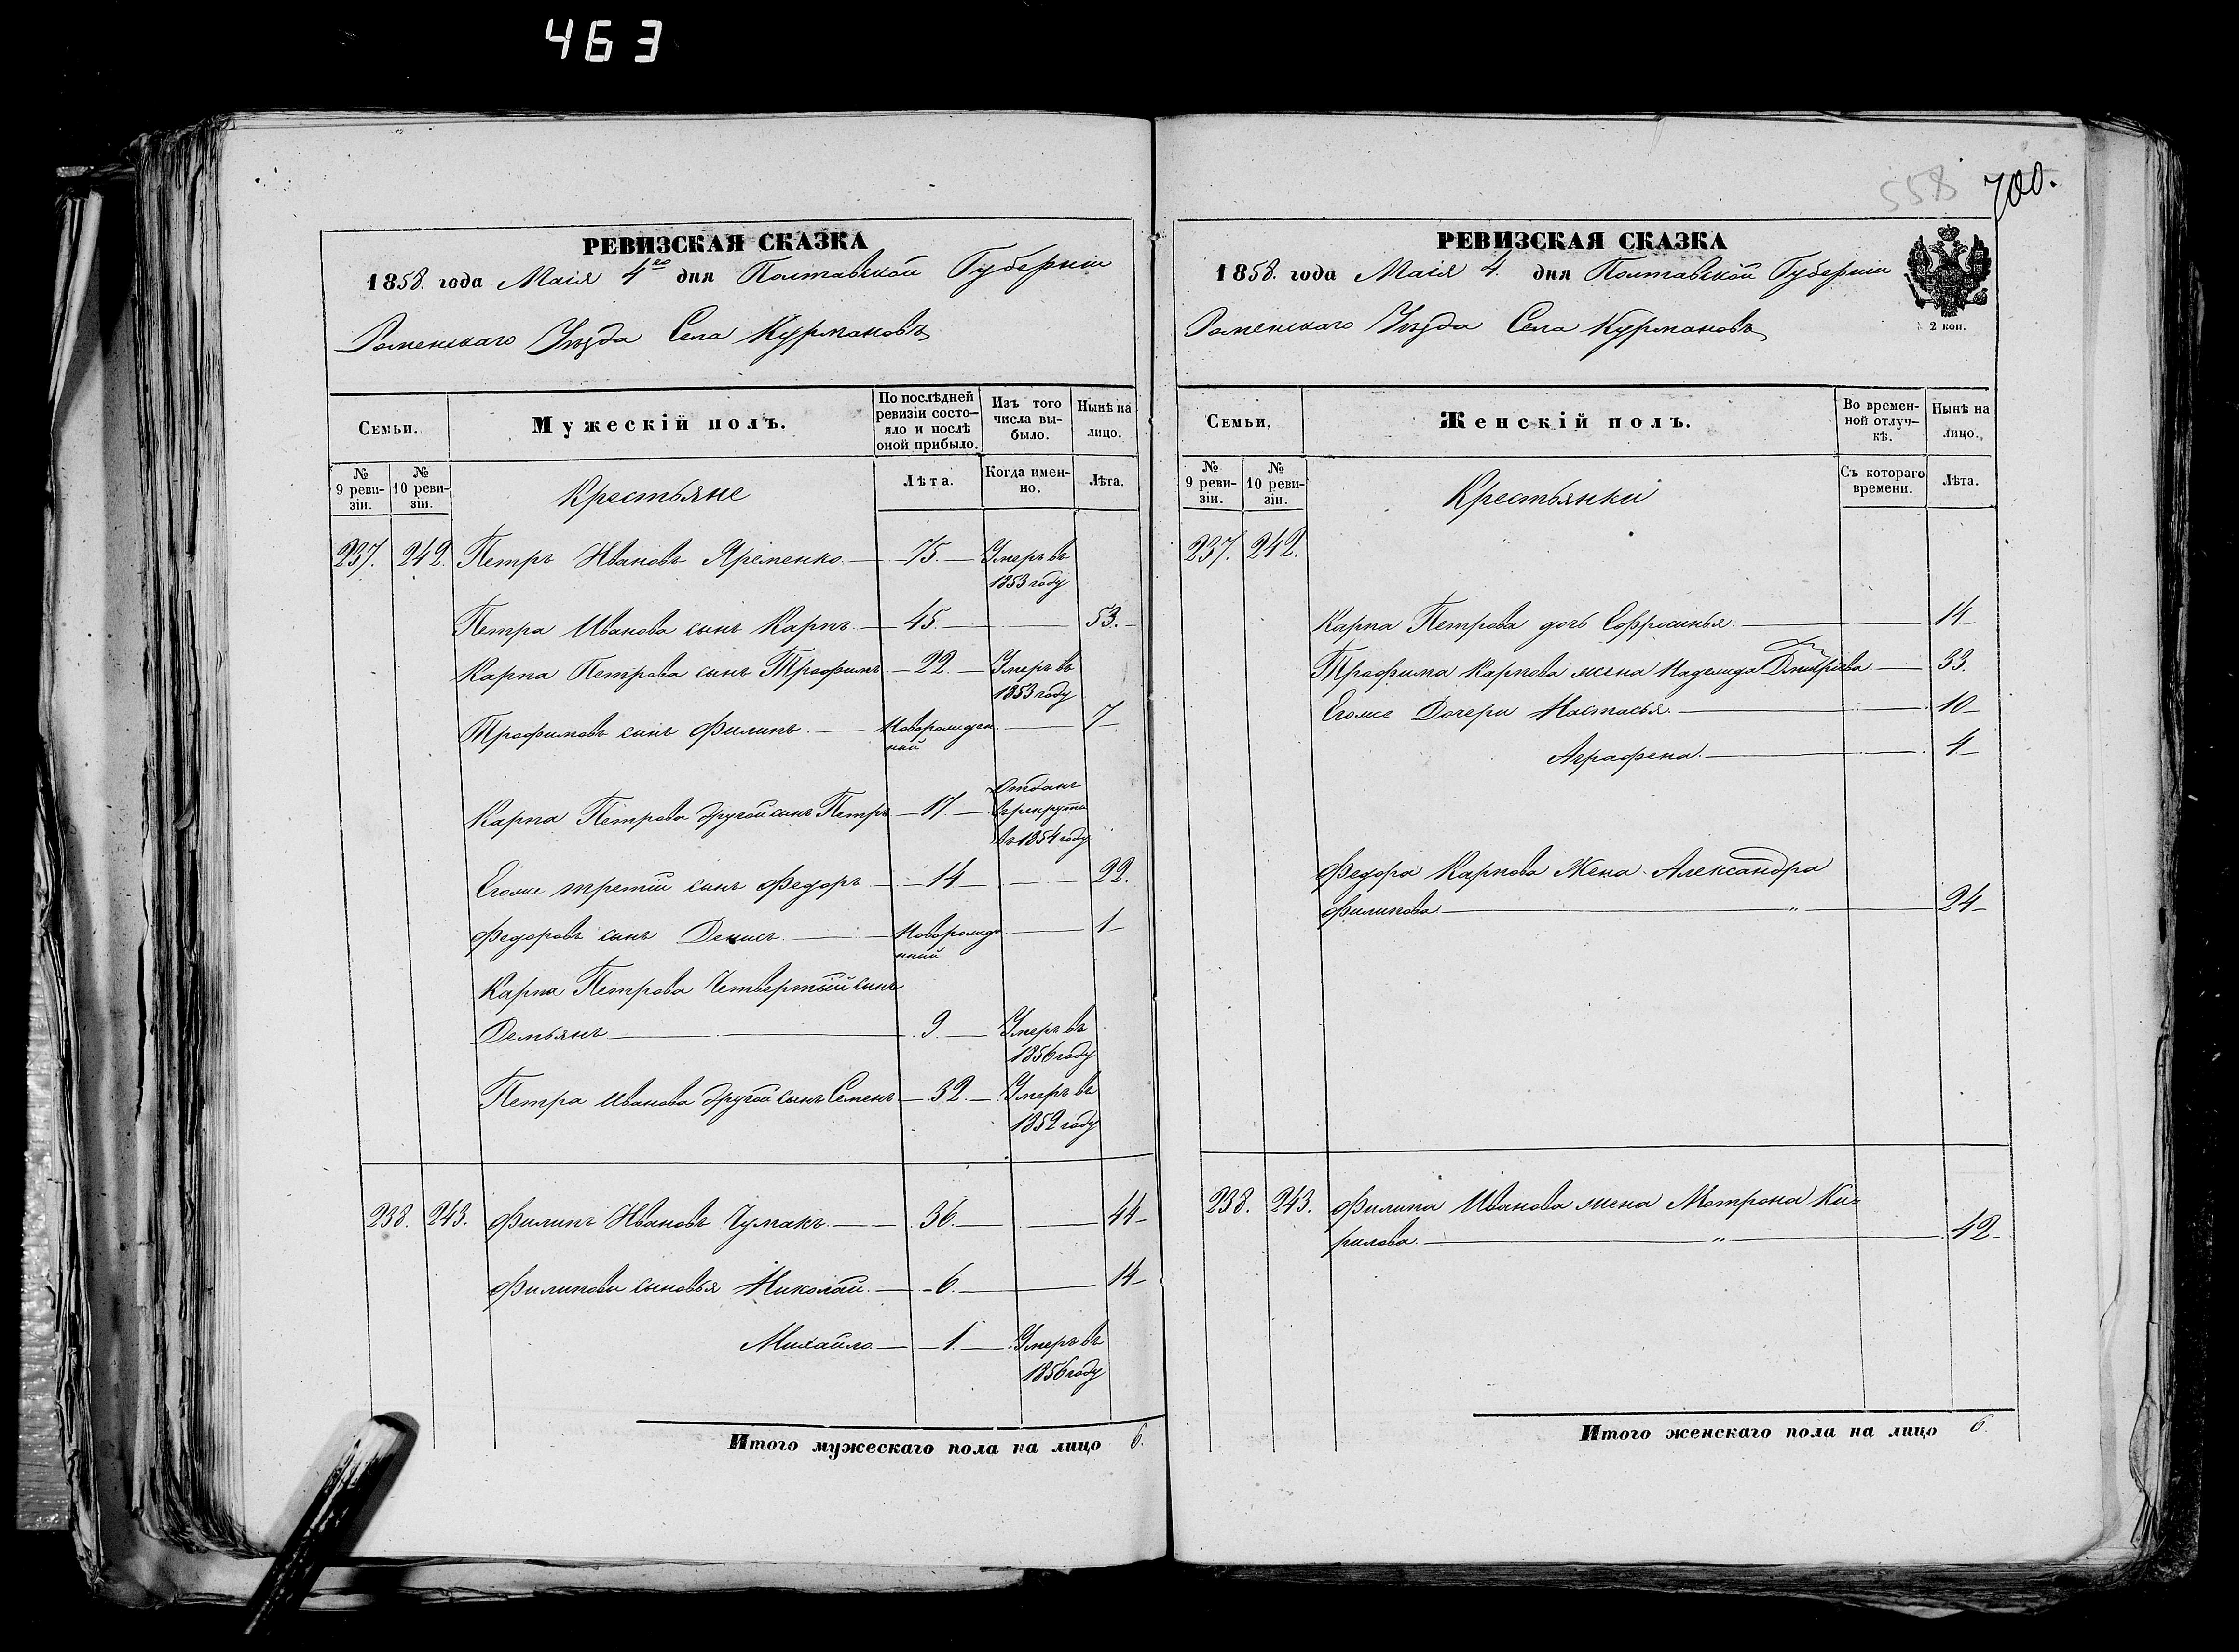 463
РЕВИЗСКАЯ СКАЗКА
1858. года Маія 4го дня Полтавской Губерніи
Роменскаго Уѣзда Села Курмановъ
Семьи.
Мужескій полъ.
По послѣдней ревизіи состо-
яло и послѣ оной прибыло.
Изъ того числа вы-
было.
Нынѣ на лицо.
№ 9 реви-
зіи.
№ 10 реви-
зіи.
Крестьяне
Лѣта.
Когда имен-
но.
Лѣта.
237. 242. Петръ Ивановъ Яременко 75. Умеръ въ
1853 году
Петра Иванова сынъ Карпъ 45 53.
Карпа Петрова сынъ Трофимъ 22. Умеръ въ
1853 году
Трофимовъ сынъ Филипъ Новорожден 7
ный
Отданъ
Карпа Петрова другой сынъ Петръ 17. въ рекруты
въ 1854 году
Егоже третій сынъ Федоръ 14 22.
Федоровъ сынъ Денисъ Новорожде 1
нный
Карпа Петрова Четвертый сынъ
Демьянъ 9 Умеръ въ
1856 году
Петра Иванова другой сынъ Семенъ 32. Умеръ въ
1852 году
238. 243. Филипъ Ивановъ Чумакъ 36. 44
Филиповы сыновья Николай 6. 14
Михайло 1. Умеръ въ
1856 году
Итого мужескаго пола на лицо 6.
558 700.
РЕВИЗСКАЯ СКАЗКА
1858. года Маія 4. дня Полтавской Губерніи
Роменскаго Уѣзда Села Курмановъ
2 коп.
Семьи.
Женскій полъ.
Во времен-
ной отлуч-
кѣ.
Нынѣ на лицо.
№ 9 реви-
зіи.
№ 10 реви-
зіи.
Крестьянки
Съ котораго времени.
Лѣта.
237. 242.
Карпа Петрова дочь Ефросинья 14
Трофима Карпова жена Надежда Дмитріева 33.
Егоже Дочери Настасья 10
Аграфена 4
Федора Карпова Жена Александра
Филипова " 24
238. 243. Филипа Иванова жена Мотрона Ки=
рилова " 42
Итого женскаго пола на лицо 6